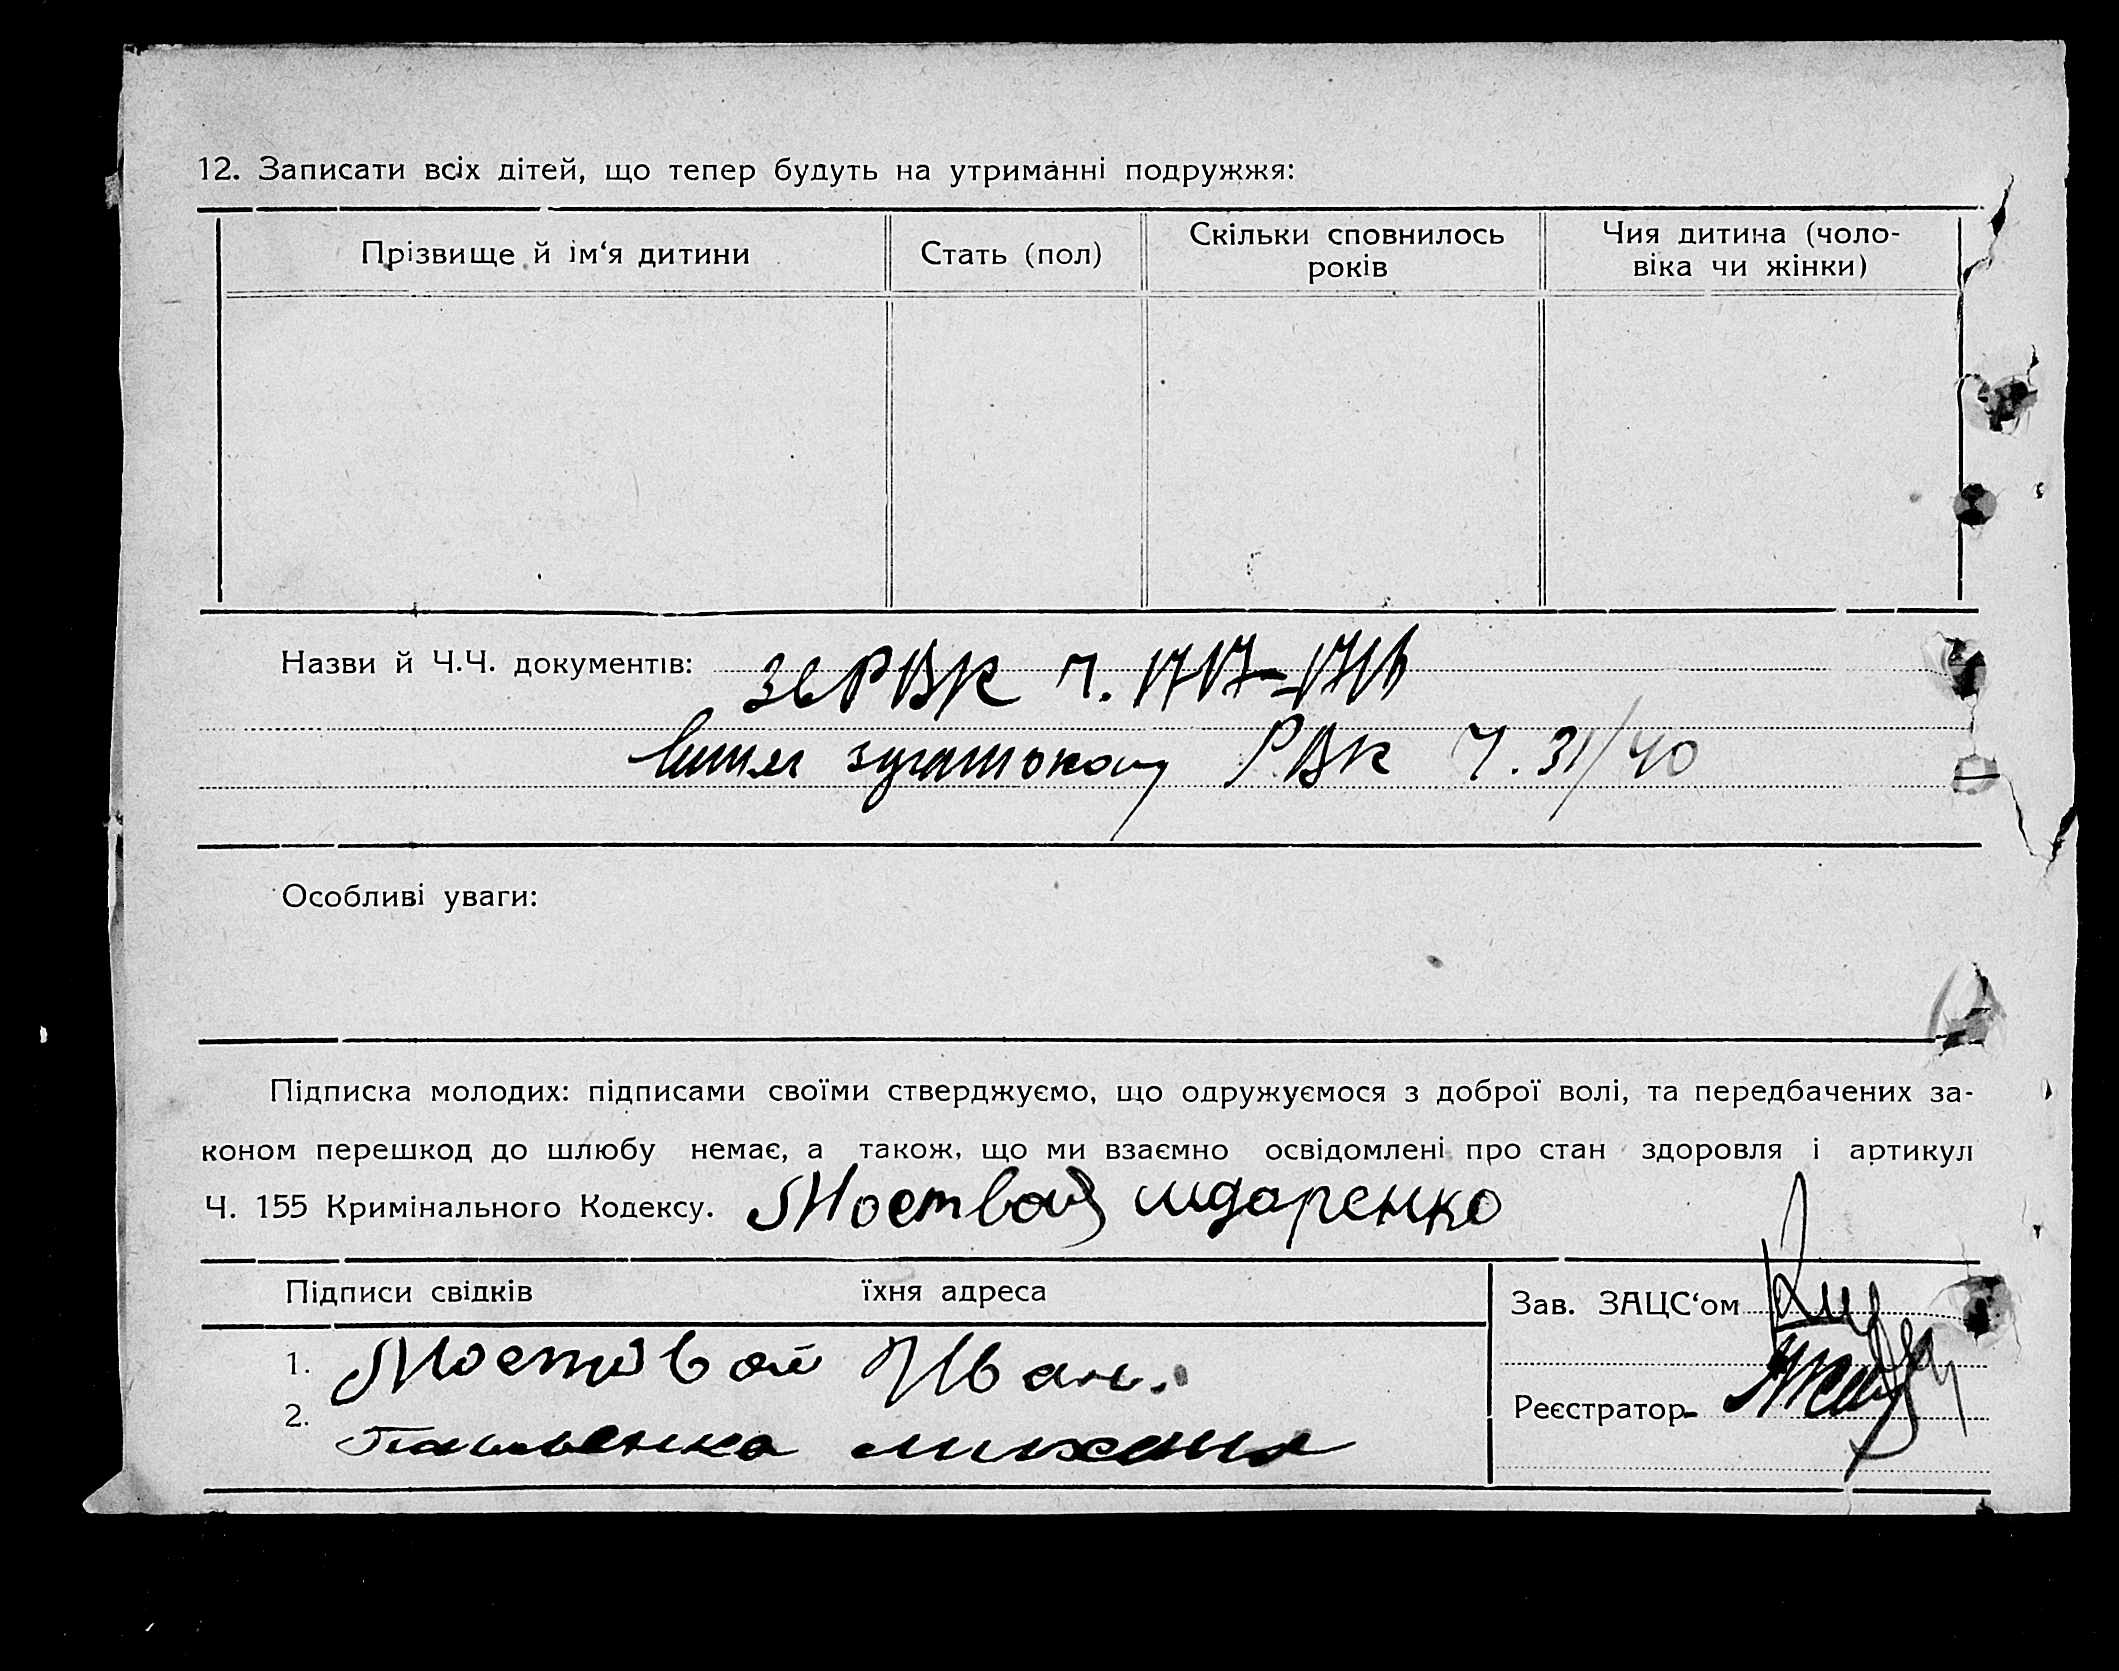 12. Записати всіх дітей, що тепер будуть на утриманні подружжя:
Прізвище й ім‘я дитини
Стать (пол)
Скільки сповнилось
років
Чия дитина (чоло-
віка чи жінки)
Назви й Ч.Ч. документів:
РВК Ч. 1717-1716
РВК Ч. 31/40
Особливі уваги:
Підписка молодих: підписами своїми стверджуємо, що одружуємося з доброї волі, та передбачених за-
коном перешкод до шлюбу немає, а також, що ми взаємно освідомлені про стан здоровля і артикул
Ч. 155 Кримінального Кодексу. Моствой шдаренко
Підписи свідків їхня адреса
Зав. ЗАЦС‘ом
1. Мостовой Иван.
Реєстратор
2. михаил